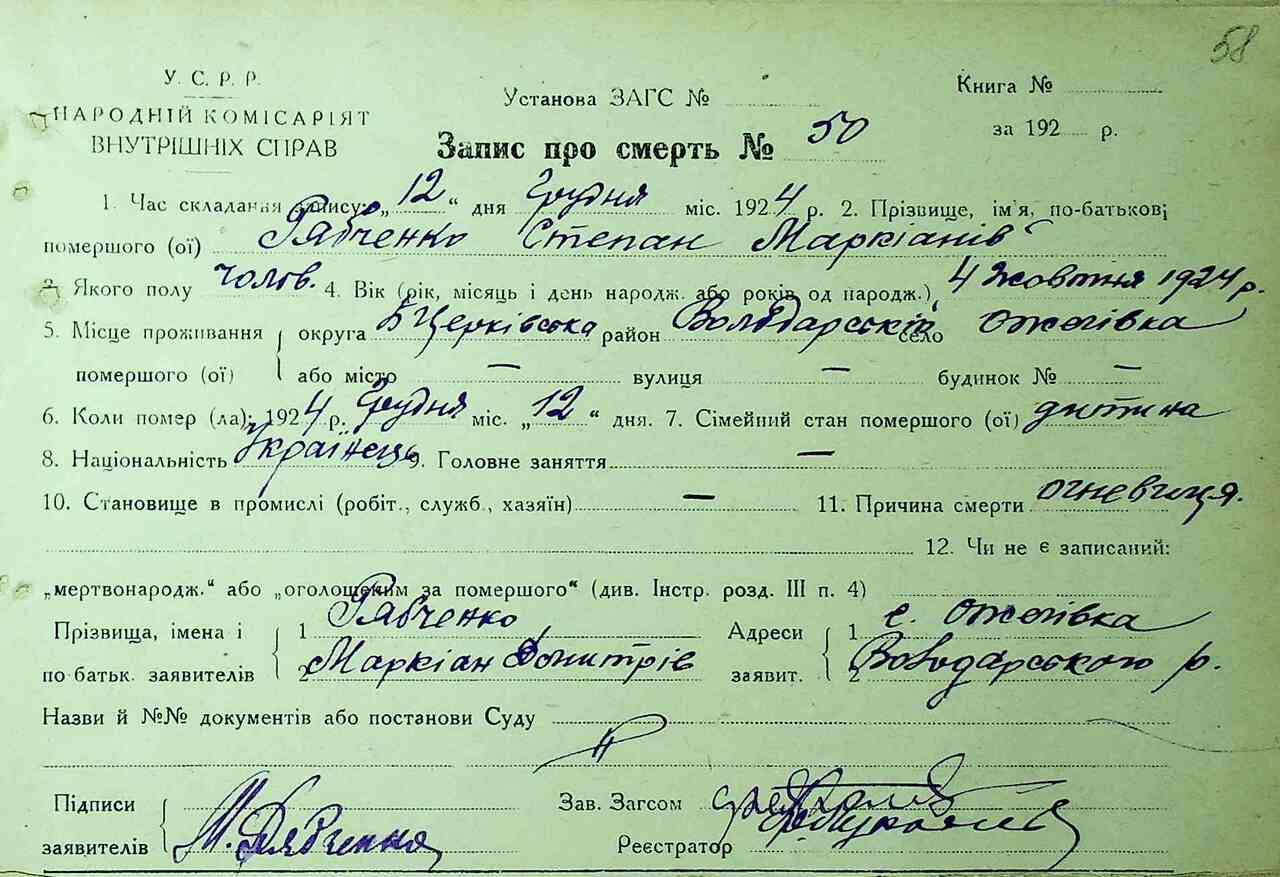 58
У. С. Р. Р.
НАРОДНІЙ КОМІСАРІЯТ
ВНУТРІШНІХ СПРАВ
Установа ЗАГС №
Книга №
за 192 р.
Запис про смерть № 50
1. Час складання запису: „12“ дня Грудня міс. 1924 р. 2. Прізвище, ім'я, по-батькові
помершого (ої) Рябченко Степан Маркіанів
3. Якого полу чолов. 4. Вік (рік, місяць і день народж. або років од народж.) 4 жовтня 1924 р.
5. Місце проживання округа БЦерківська район Володарський село Ожегівка
помершого (ої) або місто — вулиця — будинок № —
6. Коли помер (ла): 1924 р. Грудня міс. „12“ дня. 7. Сімейний стан помершого (ої) дитина
8. Національність Українець 9. Головне заняття —
10. Становище в промислі (робіт., служб., хазяїн) — 11. Причина смерти огневиця.
12. Чи не є записаний:
„мертвонародж.“ або „оголошеним за помершого“ (див. Інстр. розд. III п. 4)
Прізвища, імена і 1 Рябченко Адреси 1 с. Ожегівка
по батьк. заявителів 2 Маркіан Дмитрів заявит. 2 Володарського р.
Назви й №№ документів або постанови Суду
Підписи
заявителів М. Рябченко
Зав. Загсом
Реєстратор